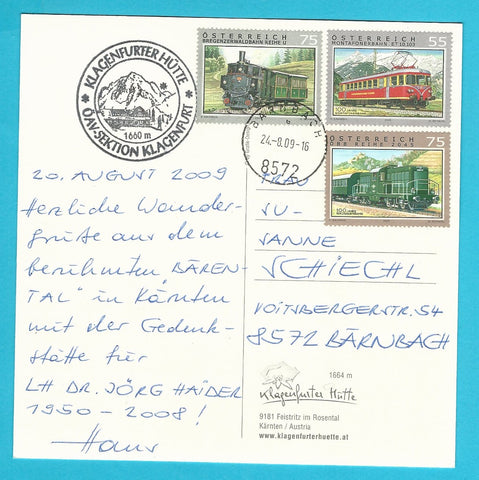 KLAGENFURTER HÜTTE
1660 m
ÖAV-SEKTION KLAGENFURT
ÖSTERREICH 75
BREGENZERWALDBAHN REIHE U
ÖSTERREICH 55
MONTAFONERBAHN ET 10.103
ÖSTERREICH 75
ÖBB REIHE 2045
BÄRNBACH
24.-8.09-16
8572
20. AUGUST 2009
Herzliche Wander-
grüße aus dem
berühmten „BÄREN-
TAL" in Kärnten
mit der Gedenk-
stätte für
LH DR. JÖRG HAIDER
1950 - 2008!
Hans
FRAU
SU-
SANNE
SCHIECHL
VOITSBERGERSTR. 54
8572 BÄRNBACH
1664 m
Klagenfurter Hütte
9181 Feistritz im Rosental
Kärnten / Austria
www.klagenfurterhuette.at